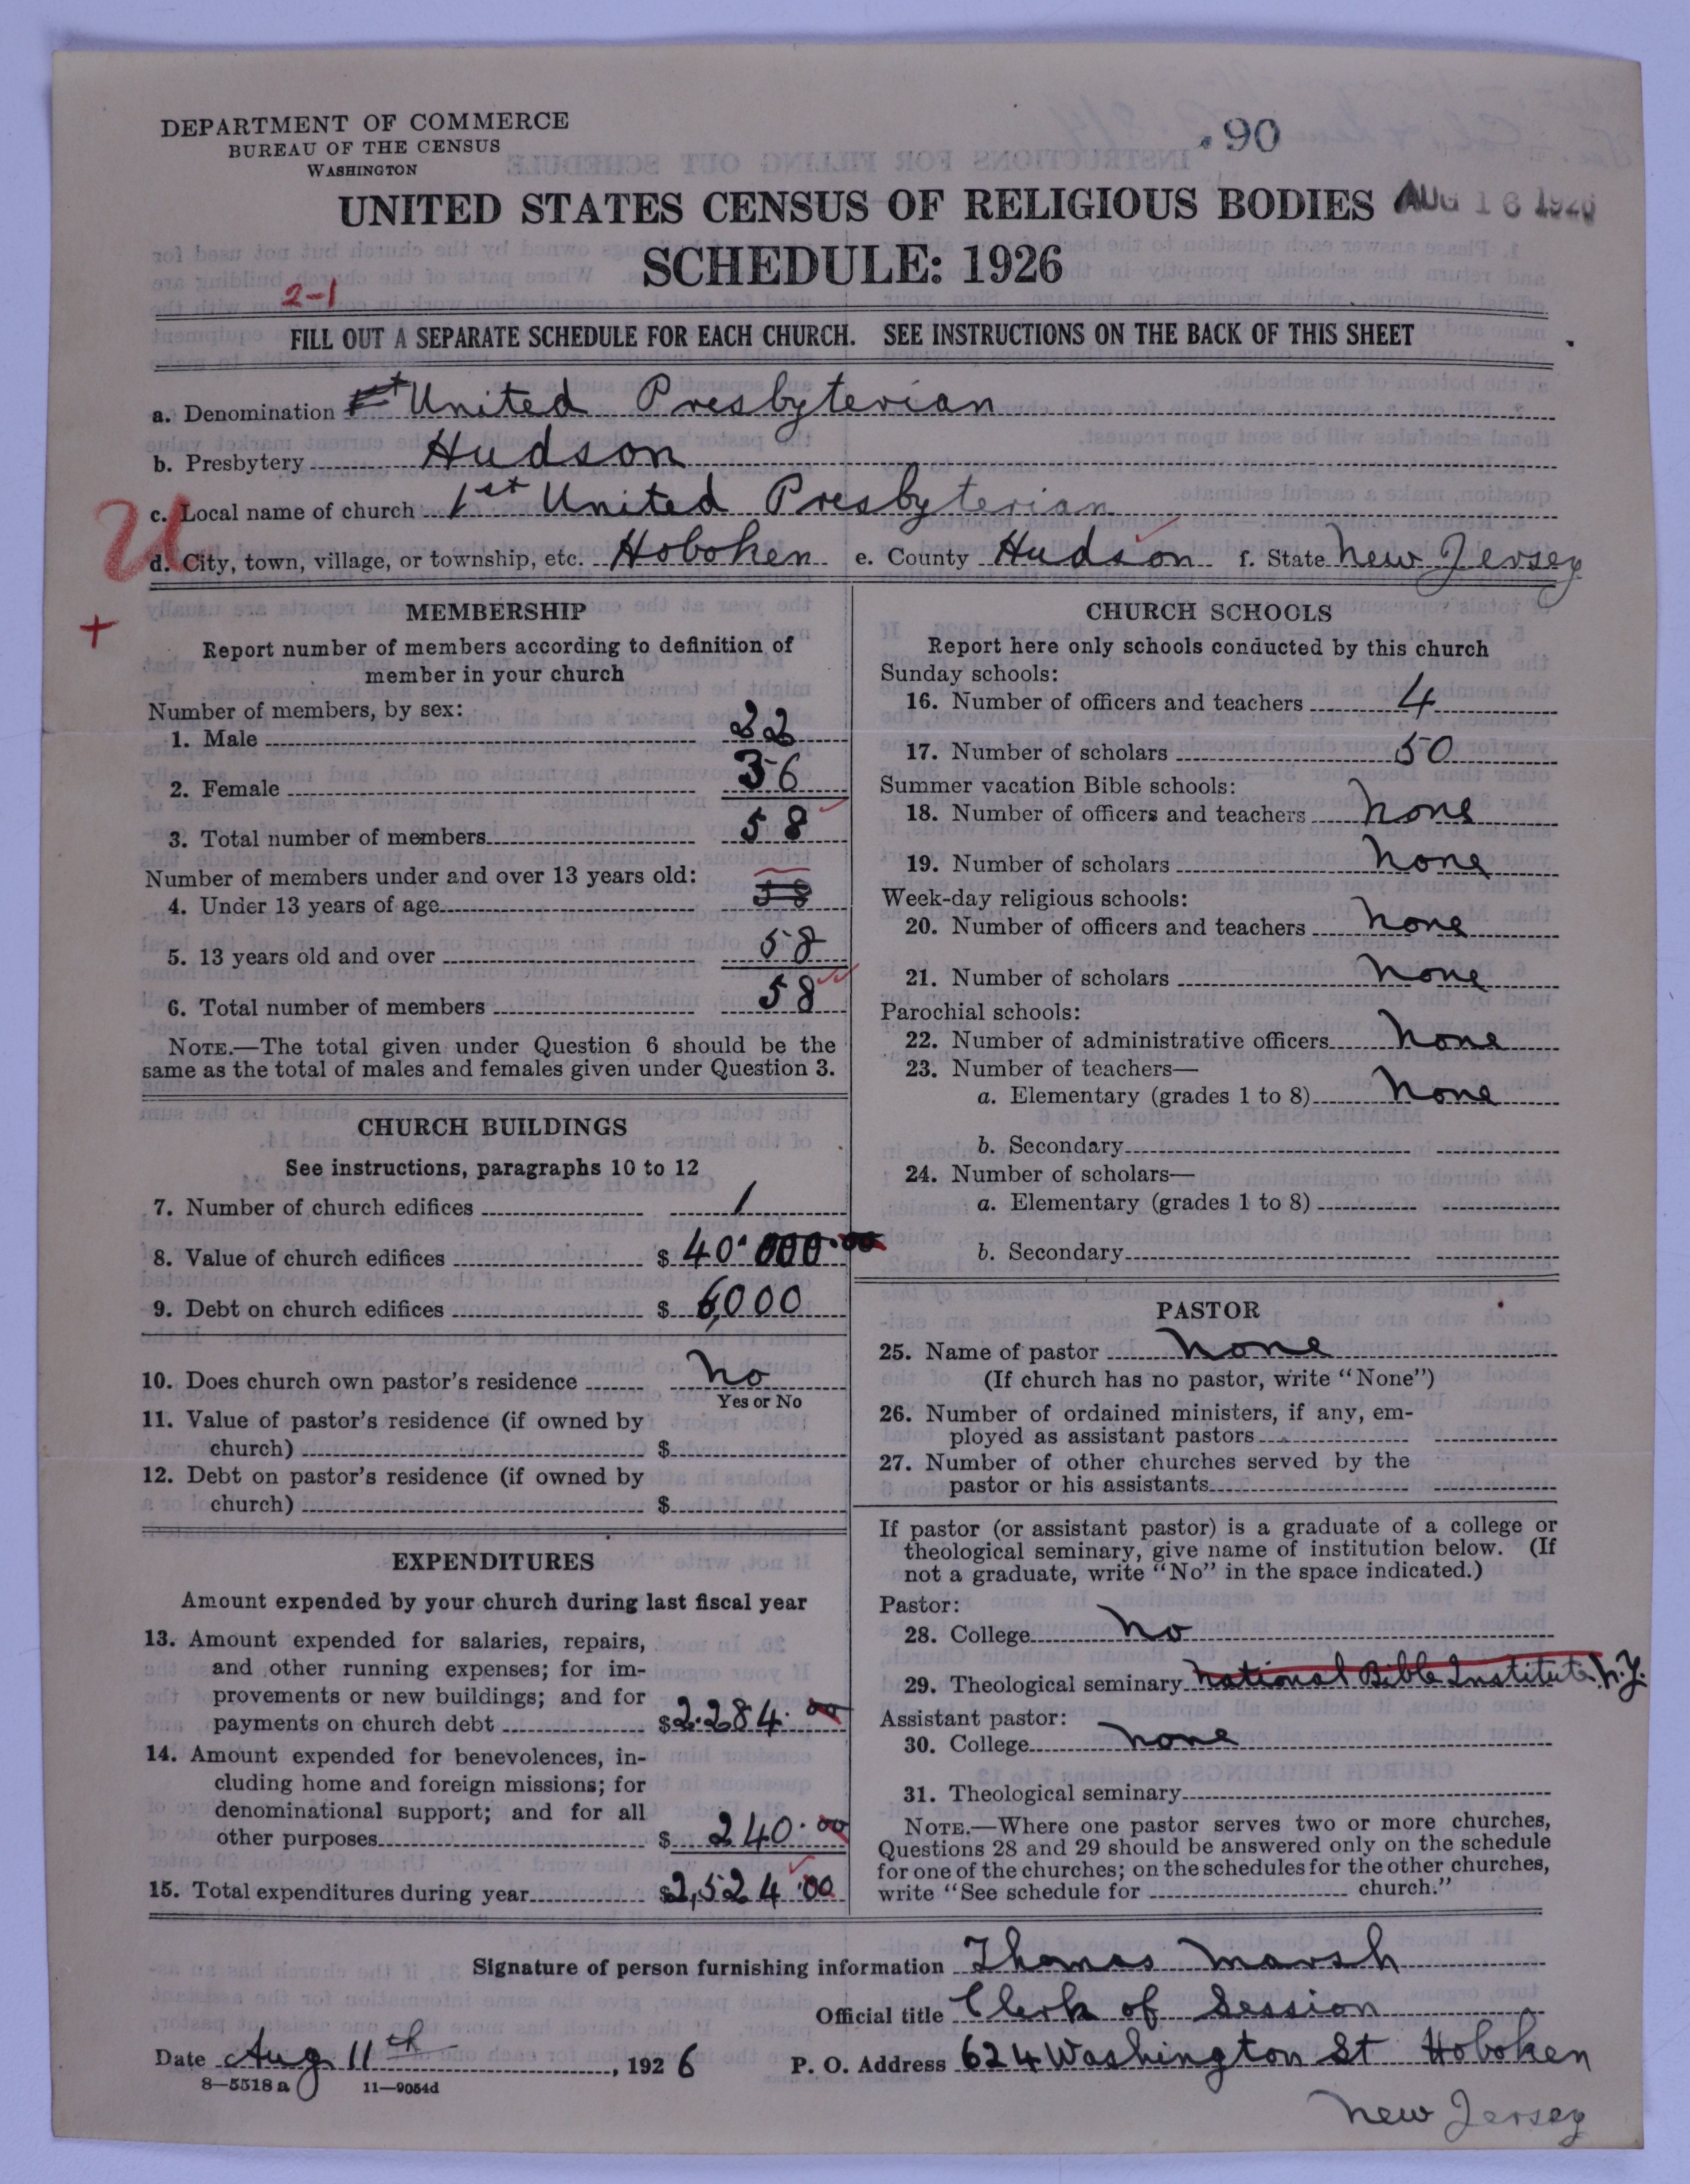 DEPARTMENT OF COMMERCE
BUREAU OF THE CENSUS
WASHINGTON
.90
UNITED STATES CENSUS OF RELIGIOUS BODIES AUG 16 1926
SCHEDULE: 1926
2-1
FILL OUT A SEPARATE SCHEDULE FOR EACH CHURCH. SEE INSTRUCTIONS ON THE BACK OF THIS SHEET
a. Denomination United Presbyterian
b. Presbytery Hudson
c. Local name of church 1st United Presbyterian
U
d. City, town, village, or township, etc. Hoboken e. County Hudson f. State New Jersey
+
MEMBERSHIP
Report number of members according to definition of
member in your church
Number of members, by sex:
1. Male 22
2. Female 36
3. Total number of members 58
Number of members under and over 13 years old:
4. Under 13 years of age 58
5. 13 years old and over 58
6. Total number of members 58
NOTE.—The total given under Question 6 should be the
same as the total of males and females given under Question 3.
CHURCH BUILDINGS
See instructions, paragraphs 10 to 12
7. Number of church edifices 1
8. Value of church edifices $ 40.000.00
9. Debt on church edifices $ 6,000
10. Does church own pastor's residence No
Yes or No
11. Value of pastor's residence (if owned by
church) $
12. Debt on pastor's residence (if owned by
church) $
EXPENDITURES
Amount expended by your church during last fiscal year
13. Amount expended for salaries, repairs,
and other running expenses; for im-
provements or new buildings; and for
payments on church debt $2.284.00
14. Amount expended for benevolences, in-
cluding home and foreign missions; for
denominational support; and for all
other purposes $ 240.00
15. Total expenditures during year $2,524.00
CHURCH SCHOOLS
Report here only schools conducted by this church
Sunday schools:
16. Number of officers and teachers 4
17. Number of scholars 50
Summer vacation Bible schools:
18. Number of officers and teachers None
19. Number of scholars None
Week-day religious schools:
20. Number of officers and teachers None
21. Number of scholars None
Parochial schools:
22. Number of administrative officers None
23. Number of teachers—
a. Elementary (grades 1 to 8) None
b. Secondary
24. Number of scholars—
a. Elementary (grades 1 to 8)
b. Secondary
PASTOR
25. Name of pastor None
(If church has no pastor, write "None")
26. Number of ordained ministers, if any, em-
ployed as assistant pastors
27. Number of other churches served by the
pastor or his assistants
If pastor (or assistant pastor) is a graduate of a college or
theological seminary, give name of institution below. (If
not a graduate, write "No" in the space indicated.)
Pastor:
28. College No
29. Theological seminary National Bible Institute N.Y.
Assistant pastor:
30. College None
31. Theological seminary
NOTE.—Where one pastor serves two or more churches,
Questions 28 and 29 should be answered only on the schedule
for one of the churches; on the schedules for the other churches,
write "See schedule for church."
Signature of person furnishing information Thomas Marsh
Official title Clerk of Session
Date Aug 11th, 1926 P. O. Address 624 Washington St Hoboken
8-5518 a 11-9054d
New Jersey